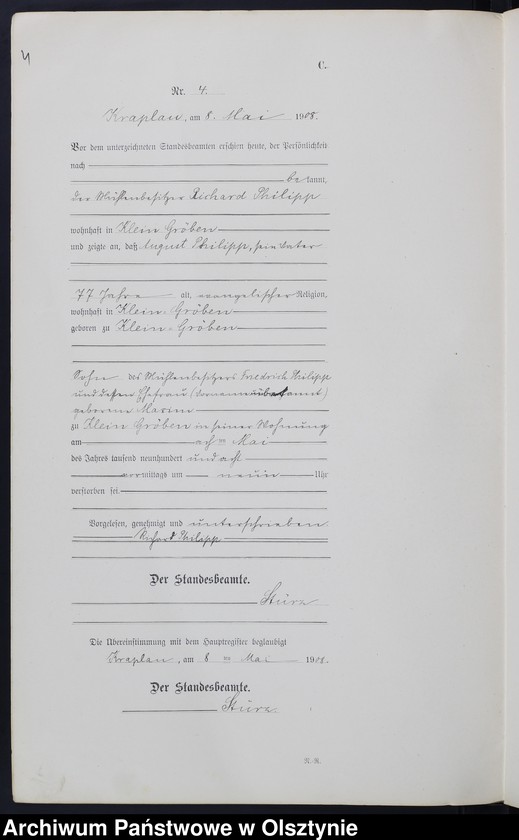 4
C.
Nr. 4.
Kraplau, am 8. Mai 1908.
Vor dem unterzeichneten Standesbeamten erschien heute, der Persönlichkeit
nach
be kannt,
der Mühlenbesitzer Richard Philipp
wohnhaft in Klein Gröben
und zeigte an, daß August Philipp, sein Vater
77 Jahre alt, evangelischer Religion,
wohnhaft in Klein-Gröben
geboren zu Klein-Gröben
Sohn des Mühlenbesitzers Friedrich Philipp
und dessen Ehefrau (Vorname unbekannt)
geborene
zu Klein Gröben in seiner Wohnung
am acht Mai
des Jahres tausend neunhundert und acht
vormittags um neun Uhr
verstorben sei.
Vorgelesen, genehmigt und unterschrieben
Richard Philipp
Der Standesbeamte.
Stürz
Die Übereinstimmung mit dem Hauptregister beglaubigt
Kraplau, am 8 ten Mai 1908.
Der Standesbeamte.
Stürz
N.-R.
Archiwum Państwowe w Olsztynie